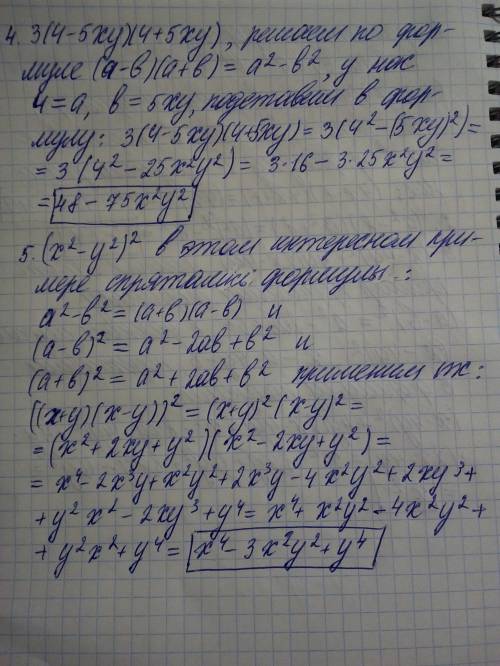 4. 3(4-5xy)(4+5xy), решаем по фор-
муле (а-в)(а+в) = а²-в², у нас
4=а, в=5xy, подставим в фор-
мулу: 3(4-5xy)(4+5xy) = 3(4²-(5xy)²) =
= 3(4²-25x²y²) = 3·16-3·25x²y² =
= 48-75x²y²
5. (x²-y²)² в этом интересном при-
мере спрятались формулы:
а²-в² = (а+в)(а-в) и
(а-в)² = а²-2ав+в² и
(а+в)² = а²+2ав+в² применим их:
((x+y)(x-y))² = (x+y)²(x-y)² =
= (x²+2xy+y²)(x²-2xy+y²) =
= x⁴-2x³y+x²y²+2x³y-4x²y²+2xy³+
+y²x²-2xy³+y⁴ = x⁴+x²y²-4x²y²+
+y²x²+y⁴ = x⁴-3x²y²+y⁴